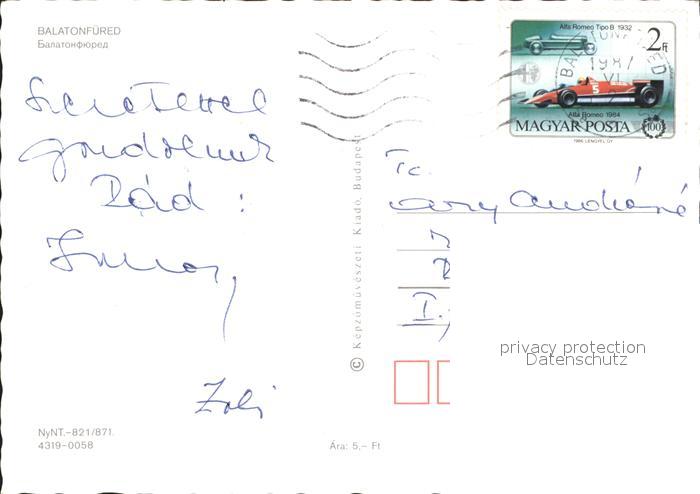 BALATONFÜRED
Балатонфюред
Szeretettel
gondolunk
Rád :
Zoli
NyNT.–821/871.
4319–0058
Ára: 5,– Ft
© Képzőművészeti Kiadó, Budapest
Alfa Romeo Tipo B 1932
2 Ft
5
Alfa Romeo 1984
MAGYAR POSTA
100
1986 LENGYEL GY
Andrásné
I.
privacy protection
Datenschutz